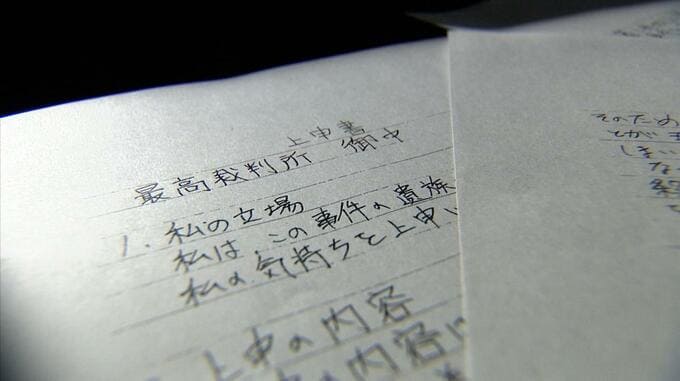 上申書
最高裁判所 御中
1. 私の立場
私は、この事件の貴族
私の気持ちを上申し
上申の内容
申の内容に
そのため
とがま
しまい
な